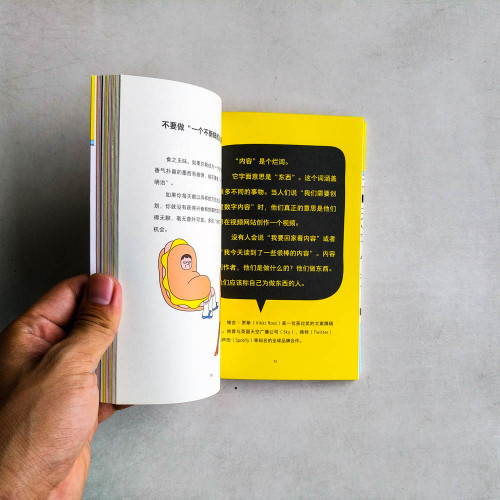 不要做“一个不断
食之无味。如果你
香气扑鼻的墨西哥卷饼
明治”。
如果你每天都过得
划，你就没有获得
得无聊，毫无意外可言。
机会。
“内容”是个烂词。
它字面意思是“东西”。这个词涵盖
多不同的事物。当人们说“我们需要创
数字内容”时，他们真正的意思是他们
在视频网站创作一个视频。
没有人会说“我要回家看内容”或者
我今天读到了一些很棒的内容”。内容
创作者，他们是做什么的？他们做东西。
们应该称自己为做东西的人。
维吉·罗斯（Vikki Ross）是一位英
曾与英国天空广播公司（Sky）、推特（Twitter）
（Spotify）等知名的全球品牌合作。